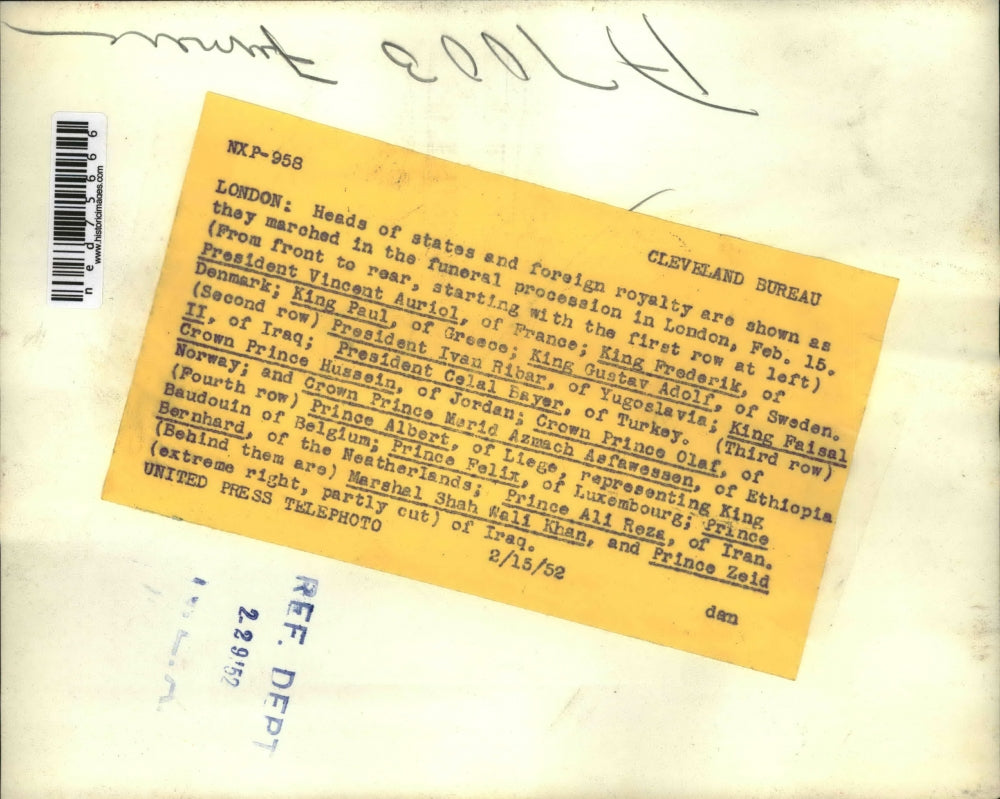 NXP-958
CLEVELAND BUREAU
LONDON: Heads of states and foreign royalty are shown as
they marched in the funeral procession in London, Feb. 15.
(From front to rear, starting with the first row at left)
President Vincent Auriol, of France; King Frederik, of
Denmark; King Paul, of Greece; King Gustav Adolf, of Sweden.
(Second row) President Ivan Ribar, of Yugoslavia; King Faisal
II, of Iraq; President Celal Bayer, of Turkey. (Third row)
Crown Prince Hussein, of Jordan; Crown Prince Olaf, of
Norway; and Crown Prince Merid Azmach Asfawessen, of Ethiopia
(Fourth row) Prince Albert, of Liege, representing King
Baudouin of Belgium; Prince Felix, of Luxembourg; Prince
Bernhard, of the Neatherlands; Prince Ali Reza, of Iran.
(Behind them are) Marshal Shah Wali Khan, and Prince Zeid
(extreme right, partly cut) of Iraq.
UNITED PRESS TELEPHOTO 2/15/52
dan
ned75666
www.historicimages.com
REF. DEPT
2 29 '52